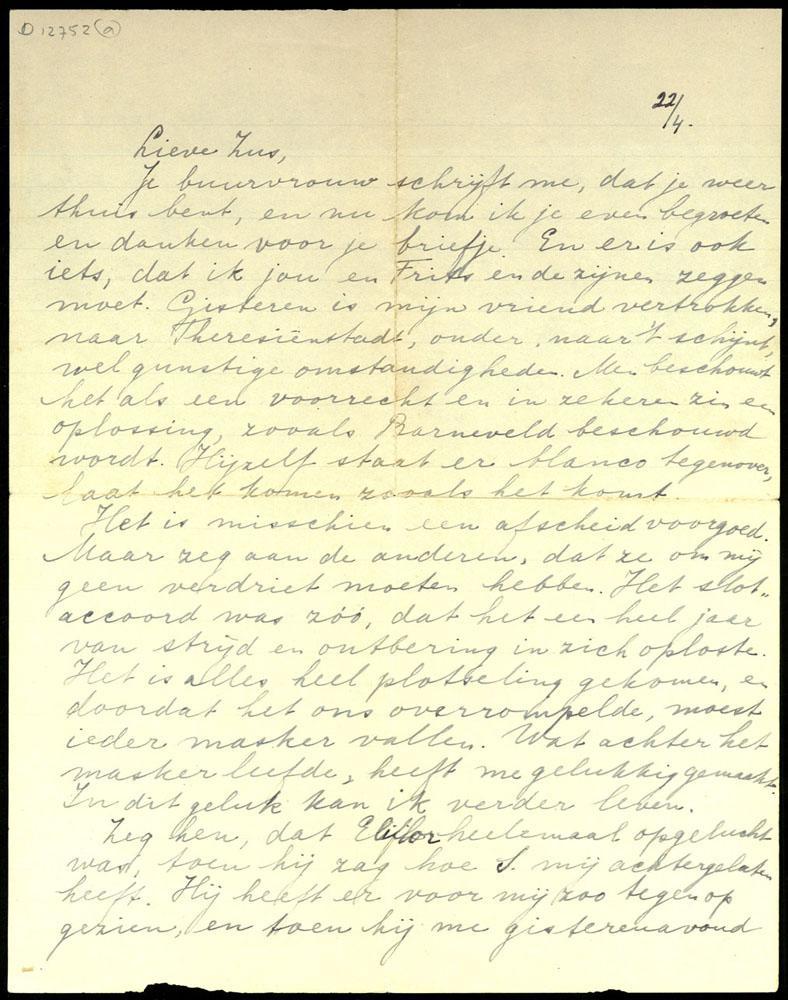 D 12752 (a)
22/4.
Lieve Zus,
Je buurvrouw schrijft me, dat je weer
thuis bent, en nu kom ik je even begroeten
en danken voor je briefje. En er is ook
iets, dat ik jou en Frits en de zijnen zeggen
moet. Gisteren is mijn vriend vertrokken,
naar Theresiënstadt, onder, naar 't schijnt,
wel gunstige omstandigheden. Men beschouwt
het als een voorrecht en in zekeren zin een
oplossing, zooals Barneveld beschouwd
wordt. Hijzelf staat er blanco tegenover,
laat het komen zooals het komt.
Het is misschien een afscheid voorgoed.
Maar zeg aan de anderen, dat ze om mij
geen verdriet moeten hebben. Het slot-
accoord was zóó, dat het een heel jaar
van strijd en ontbering in zich oploste.
Het is alles heel plotseling gekomen, en
doordat het ons overrompelde, moest
ieder masker vallen. Wat achter het
masker leefde, heeft me gelukkig gemaakt.
In dit geluk kan ik verder leven.
Zeg hen, dat heelemaal opgelucht
was, toen hij zag hoe S. mij achtergelaten
heeft. Hij heeft er voor mij zoo tegen op
gezien, en toen hij me gisterenavond